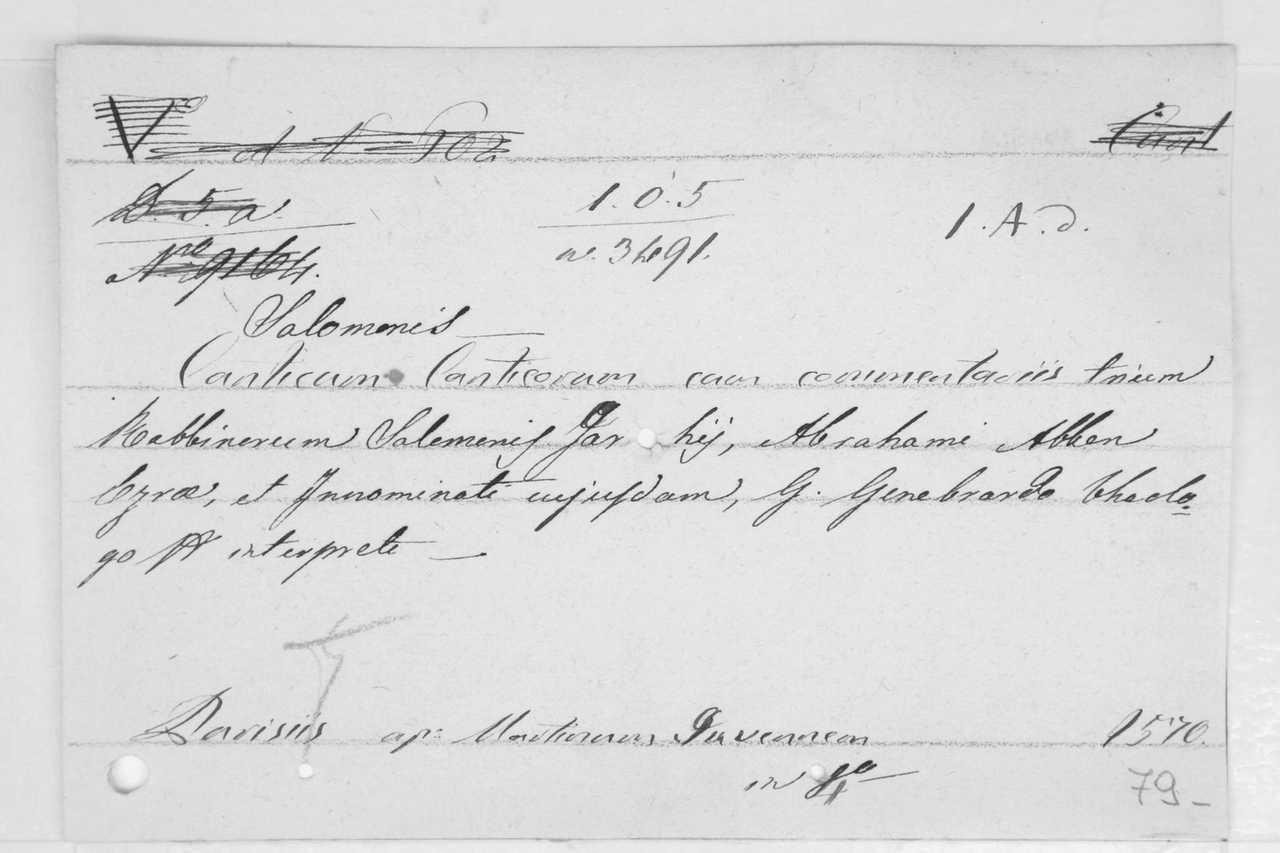 D. 5. a.
1. O. 5
1. A. d.
Nro 9164.
n. 3491.
Salomonis
Canticum Canticorum cum commentariis trium
Rabbinorum Salomonis Jar hij, Abrahami Abben
Ezræ, et Innominati cujusdam, G. Genebrardo theolo
go interprete
Parisiis ap. Martinum Juvenem 1570.
in 4to
79